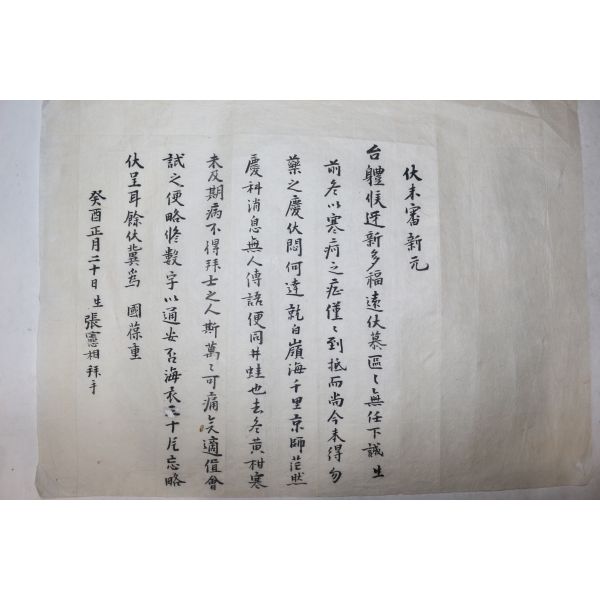 伏未審新元
台體候迓新多福遠伏慕區〻無任下誠生
前冬以寒疴之症僅〻到抵而尚今未得勿
藥之慶伏悶何達就白嶺海千里京師茫然
慶科消息無人傳語便同井蛙也去冬黃柑寒
未及期病不得拜士之人斯萬〻可痛矣適值會
試之便略修數字以通安否海衣三十尺忘略
伏呈耳餘伏冀為 國葆重
癸酉正月二十日生張憲相拜手